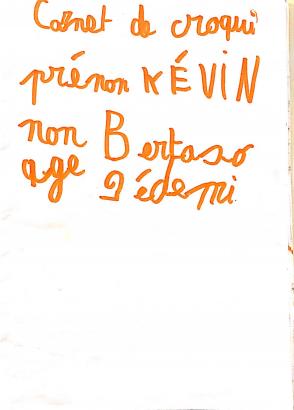 Carnet de croqui
prénon KÉVIN
non Bertaso
age 9 édemi